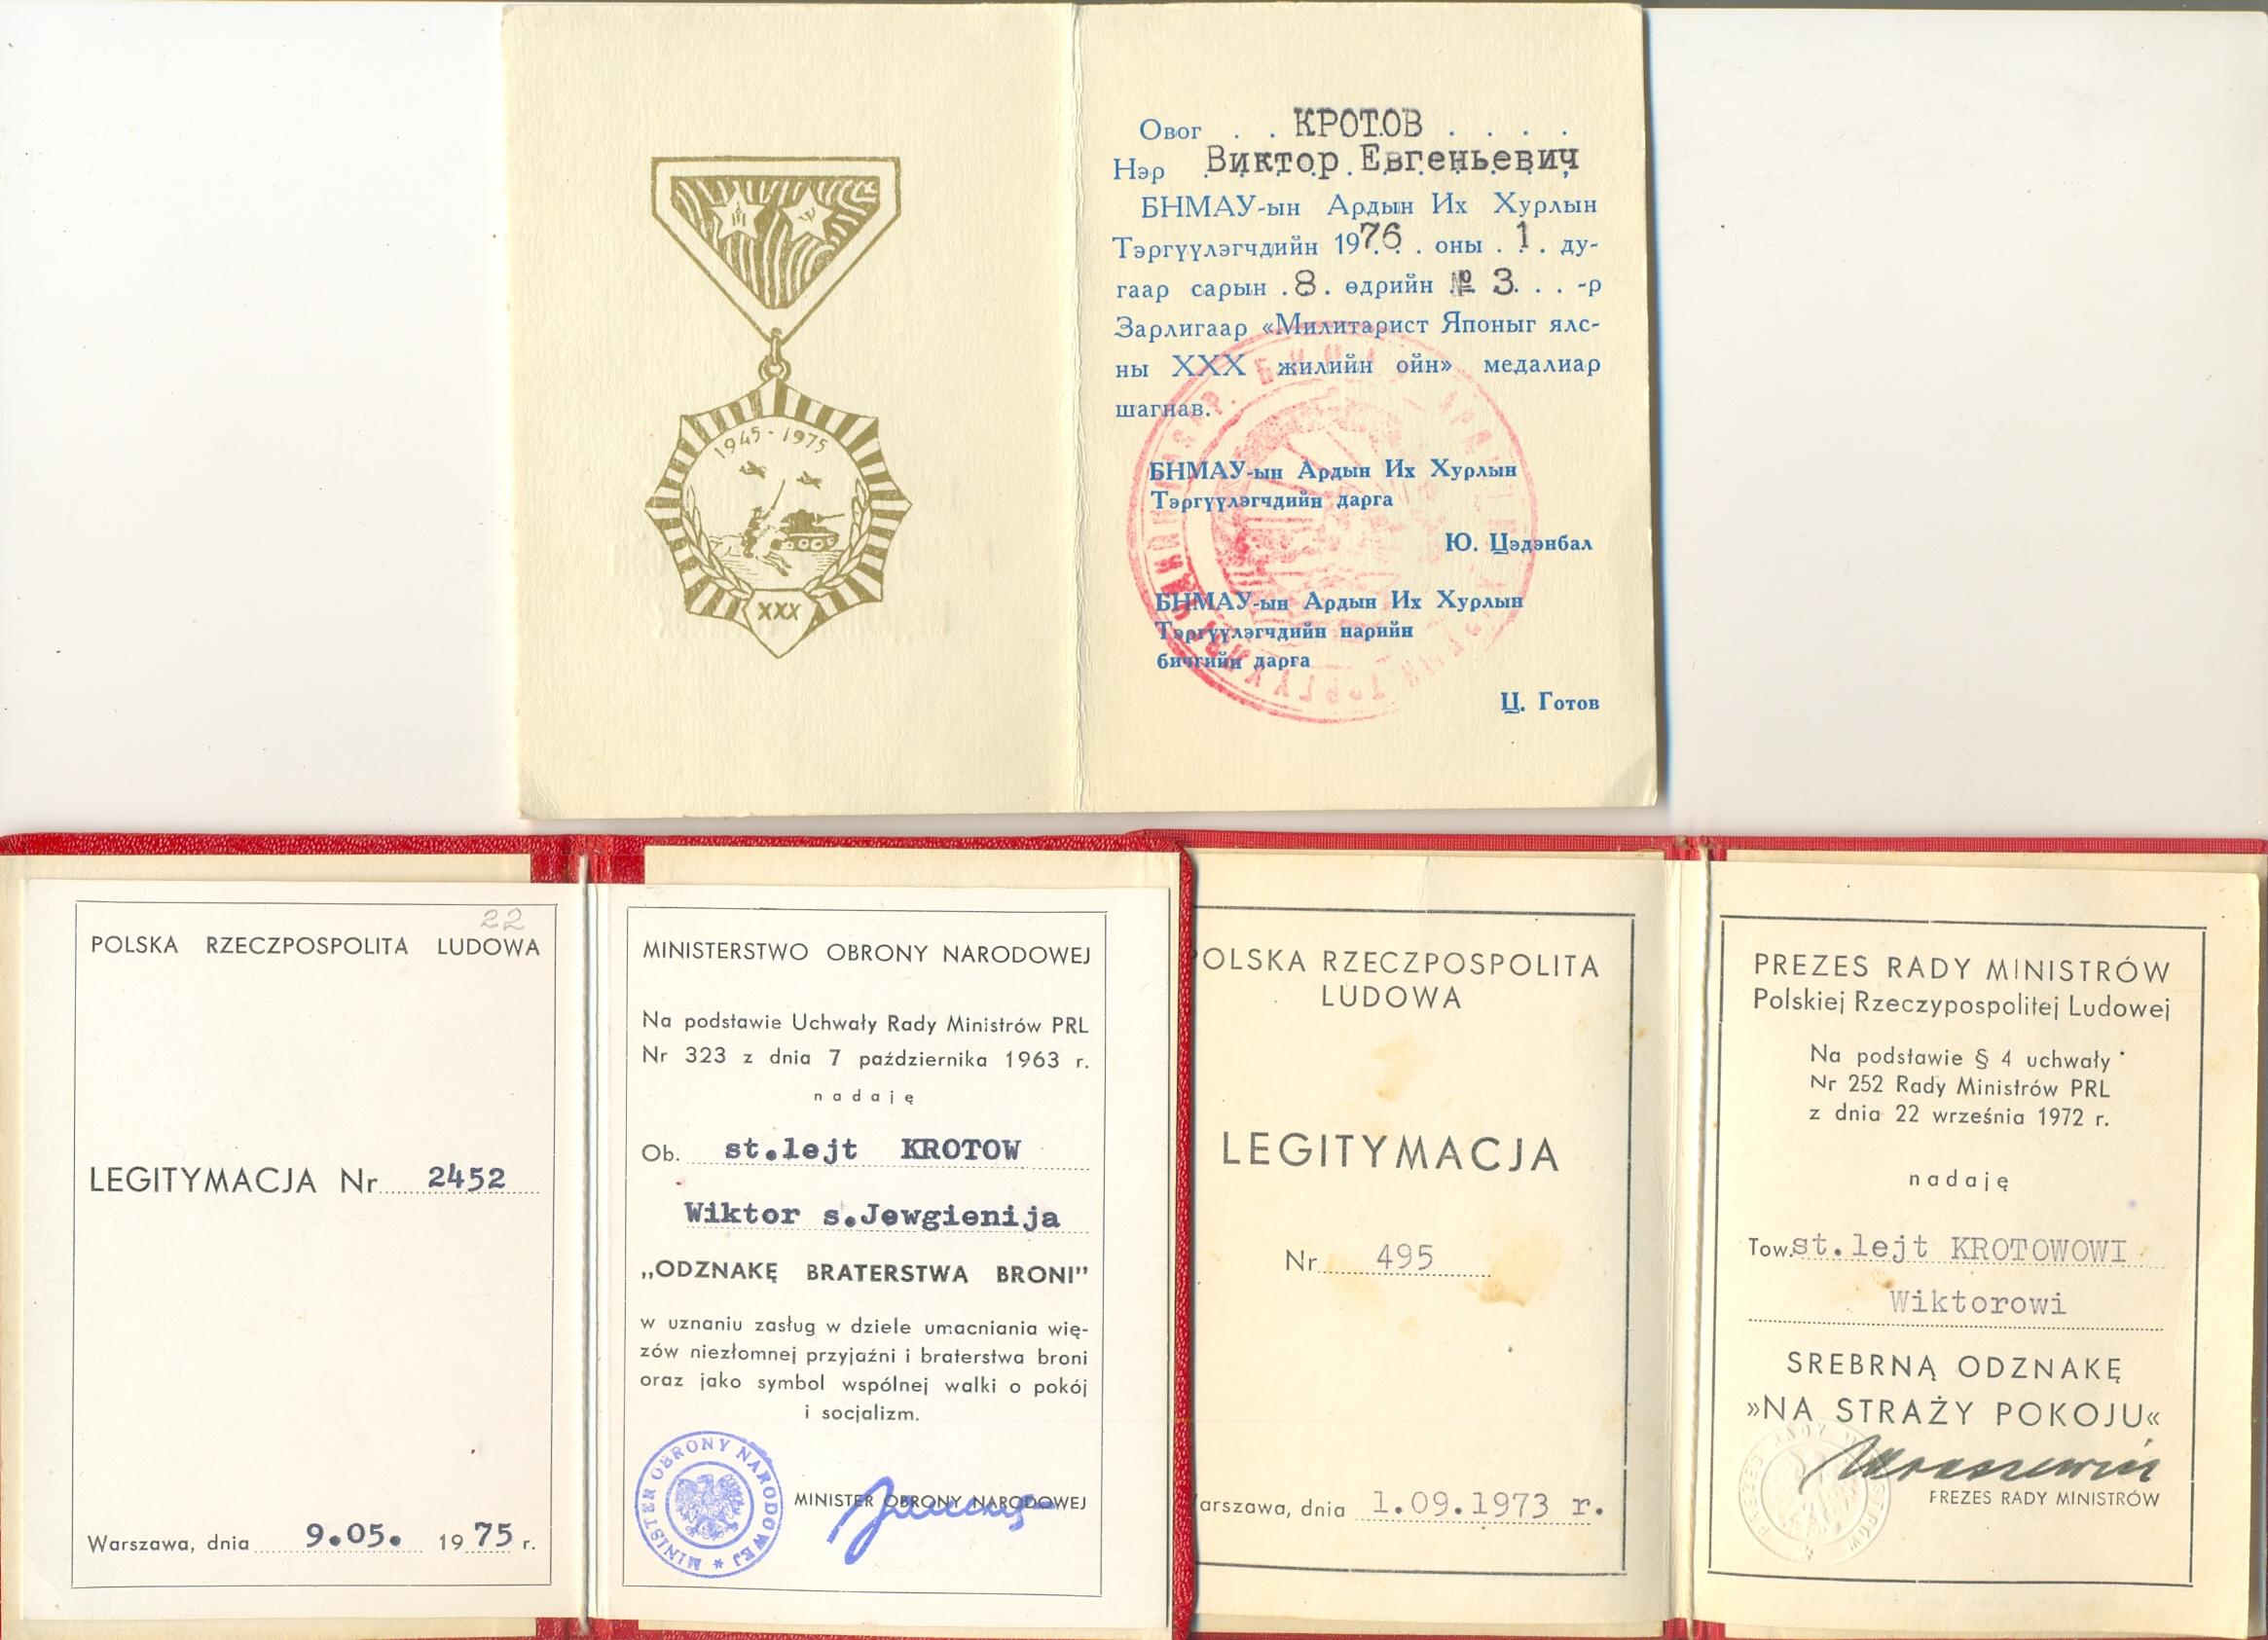 1945-1975
XXX
Овог . . КРОТОВ . . . .
Нэр Виктор Евгеньевич
БНМАУ-ын Ардын Их Хурлын
Тэргүүлэгчдийн 1976 . оны . 1 . ду-
гаар сарын . 8 . өдрийн № 3 . . . -р
Зарлигаар «Милитарист Японыг ялс-
ны XXX жилийн ойн» медалиар
шагнав.
БНМАУ-ын Ардын Их Хурлын
Тэргүүлэгчдийн дарга
Ю. Цэдэнбал
БНМАУ-ын Ардын Их Хурлын
Тэргүүлэгчдийн нарийн
бичгийн дарга
Ц. Готов
22
POLSKA RZECZPOSPOLITA LUDOWA
LEGITYMACJA Nr 2452
Warszawa, dnia 9.05. 1975 r.
MINISTERSTWO OBRONY NARODOWEJ
Na podstawie Uchwały Rady Ministrów PRL
Nr 323 z dnia 7 października 1963 r.
nadaję
Ob. st.lejt KROTOW
Wiktor s.Jewgienija
„ODZNAKĘ BRATERSTWA BRONI”
w uznaniu zasług w dziele umacniania wię-
zów niezłomnej przyjaźni i braterstwa broni
oraz jako symbol wspólnej walki o pokój
i socjalizm.
MINISTER OBRONY NARODOWEJ
MINISTER OBRONY NARODOWEJ
POLSKA RZECZPOSPOLITA
LUDOWA
LEGITYMACJA
Nr 495
arszawa, dnia 1.09.1973 r.
PREZES RADY MINISTRÓW
Polskiej Rzeczypospolitej Ludowej
Na podstawie § 4 uchwały
Nr 252 Rady Ministrów PRL
z dnia 22 września 1972 r.
nadaję
Tow. st.lejt KROTOWOWI
Wiktorowi
SREBRNĄ ODZNAKĘ
»NA STRAŻY POKOJU«
PREZES RADY MINISTRÓW